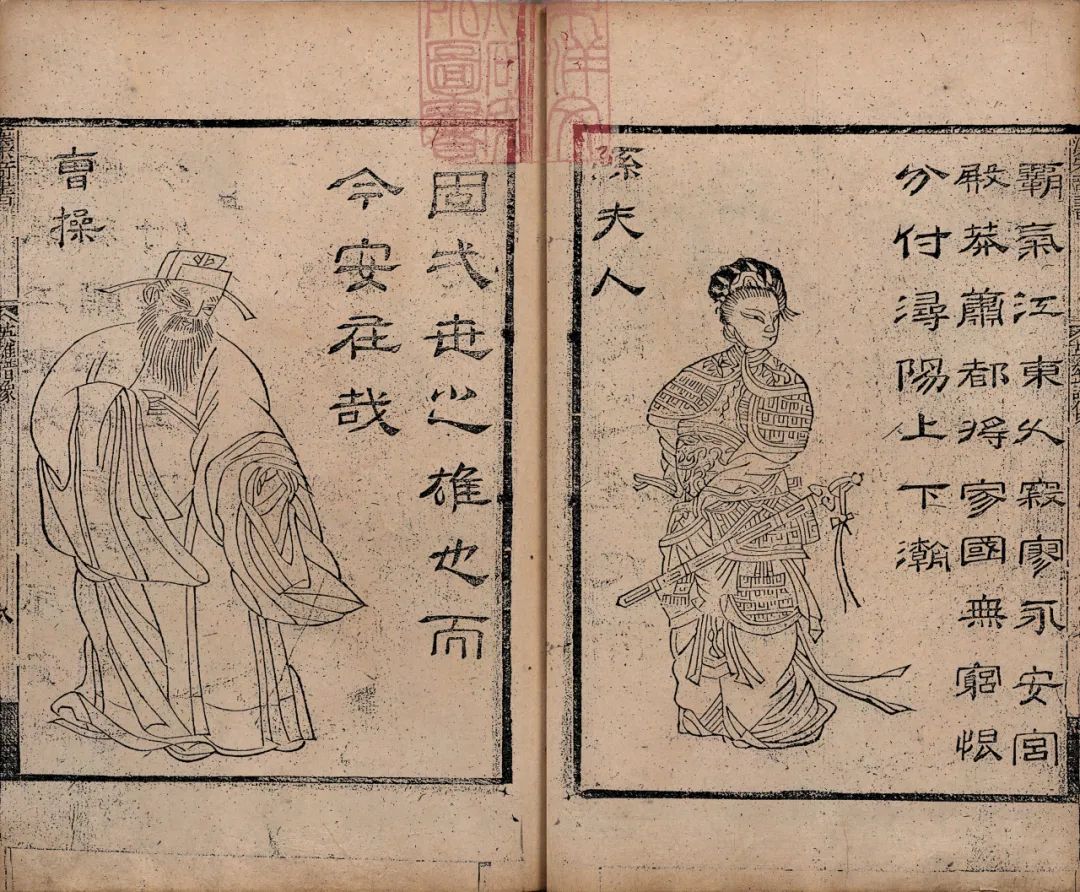 霸氣江東久寂寥永安宮
殿莽蕭都將家國無窮恨
分付潯陽上下潮
孫夫人
固弌世之雄也而
今安在哉
曹操
洋文
圖書